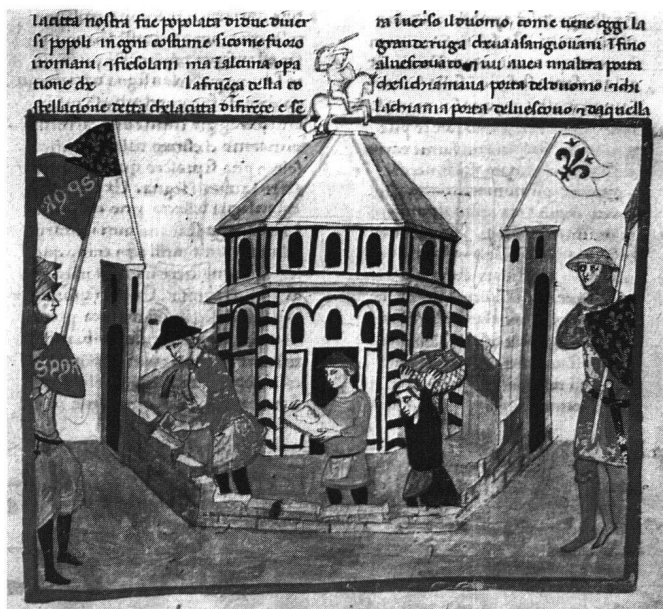 lacitta nostra fue popolata diduc diuer
si popoli in ogni costume sicome fuoro
iromani ⁊ fiesolani ma ĩ alcuna opa
tione de la della co
stellacione detta chelacitta difirẽce e fẽ
ra ĩuerso ilduomo come tiene oggi la
grande ruga cheua asangiouani Ifino
aluescouato ⁊ iui auea altra porta
chesichiamaua porta delduomo ⁊ chi
lachiama porta deluescouo ⁊ daquella
SPQR
SPQR